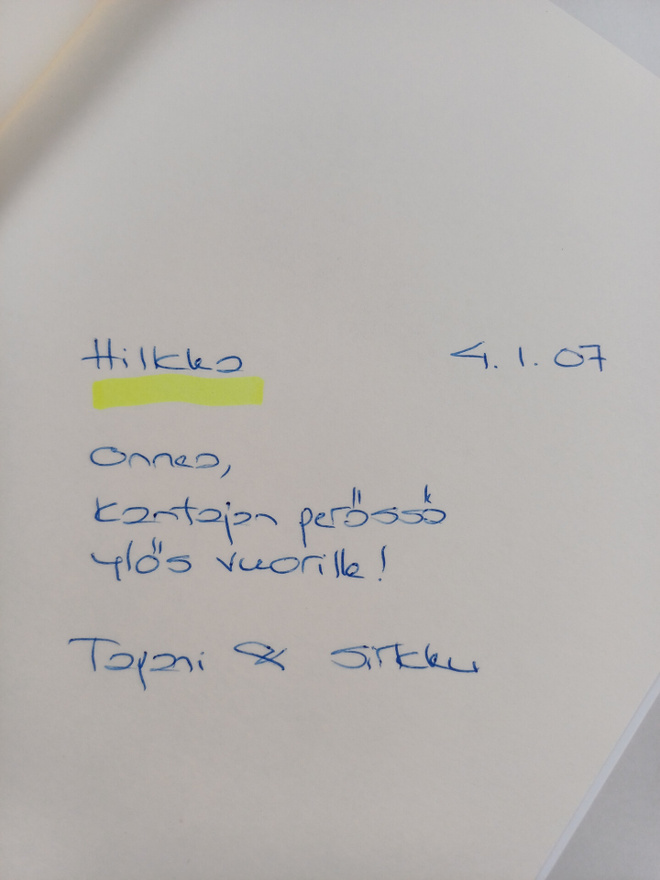 Hilkka 4.1.07
Onnea,
Kantajan perässä
ylös vuorille!
Tapani & Sirkku